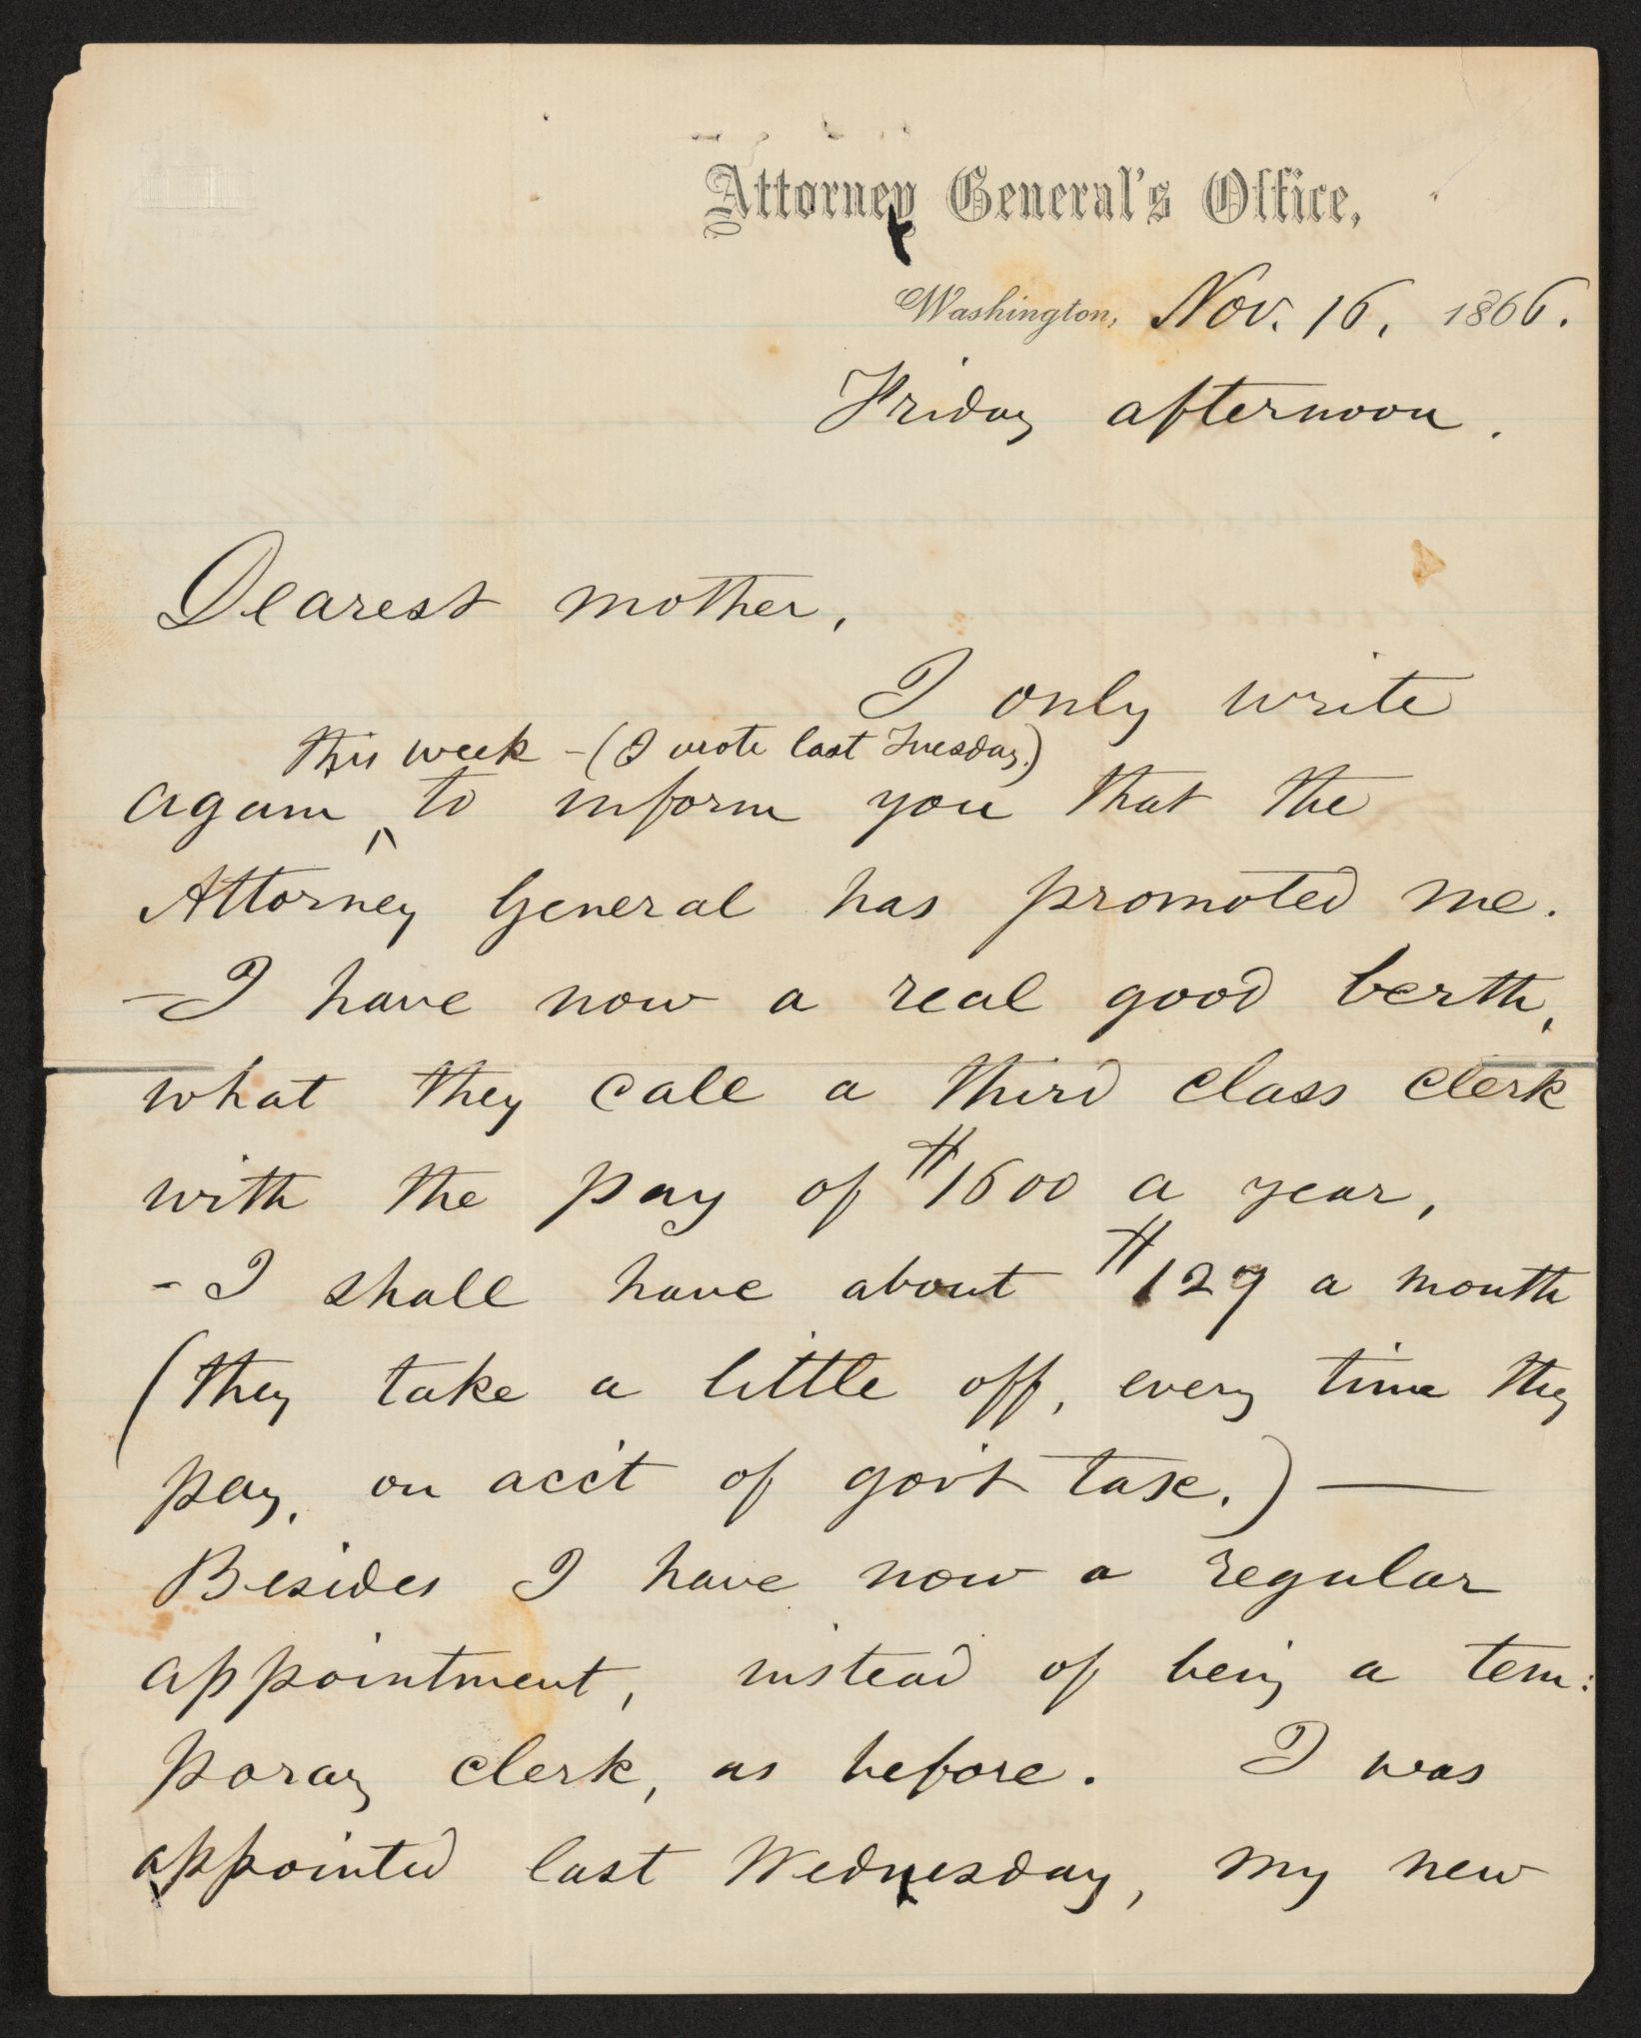 Attorney General's Office,
Washington, Nov. 16, 1866.
Friday afternoon.
Dearest mother,
I only write
this week - (I wrote last Tuesday.)
again ^ to inform you that the
Attorney General has promoted me.
- I have now a real good berth,
what they call a third class clerk
with the pay of $1600 a year,
- I shall have about $127 a month
(they take a little off, every time they
pay, on acc't of gov't tax.) —
Besides I have now a regular
appointment, instead of being a tem:
porary clerk, as before. I was
appointed last Wednesday, my new